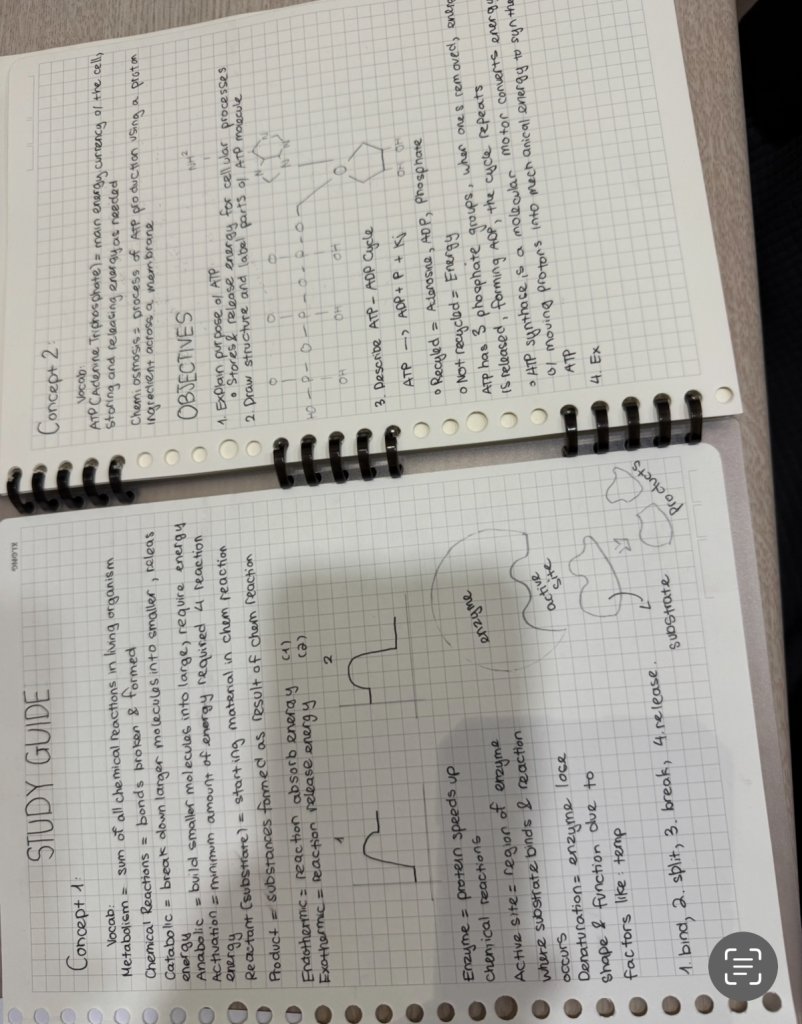 STUDY GUIDE
Concept 1:
Vocab:
Metabolism = sum of all chemical reactions in living organism
Chemical Reactions = bonds broken & formed
Catabolic = break down larger molecules into smaller, releas
energy
Anabolic = build smaller molecules into large, require energy
Activation = minimum amount of energy required 4 reaction
energy
Reactant (substrate) = starting material in chem reaction
Product = substances formed as result of chem reaction
Endothermic = reaction absorb energy (1)
Exothermic = reaction release energy (2)
1 2
Enzyme = protein speeds up
chemical reactions
Active site = region of enzyme
where substrate binds & reaction
occurs
Denaturation = enzyme lose
shape & function due to
factors like: temp
enzyme
active
site
substrate
products
1. bind, 2. split, 3. break, 4. release.
KLGINO
Concept 2:
Vocab:
ATP (Adenine Triphosphate) = main energy currency of the cell,
storing and releasing energy as needed
Chemiosmosis = process of ATP production using a proton
ingredient across a membrane
OBJECTIVES
1. Explain purpose of ATP
Stores & release energy for cellular processes
2. Draw structure and label parts of ATP molecule
NH2
N N
N N
O O O
HO-P-O-P-O-P-O
OH OH OH
O
OH OH
3. Describe ATP-ADP Cycle
ATP → ADP + P + Kj
Recycled = Adenosine, ADP, phosphate
Not recycled = Energy
ATP has 3 phosphate groups, when one s removed, ener
is released, forming ADP, the cycle repeats
ATP synthase is a molecular motor converts energy
of moving protons into mechanical energy to synthe
ATP
4. Ex